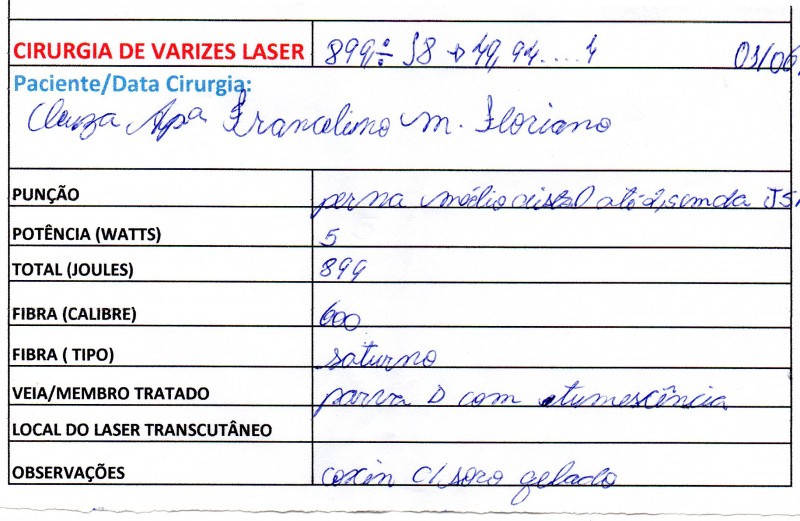 CIRURGIA DE VARIZES LASER 899 ÷ 18 → 49,94....4 01/06
Paciente/Data Cirurgia:
Cleuza Apª Francelino M. Floriano
PUNÇÃO perna médio distal até 2,5cm da JS
POTÊNCIA (WATTS) 5
TOTAL (JOULES) 899
FIBRA (CALIBRE) 600
FIBRA ( TIPO) saturno
VEIA/MEMBRO TRATADO parva D com tumescência
LOCAL DO LASER TRANSCUTÂNEO
OBSERVAÇÕES coxin c/ soro gelado